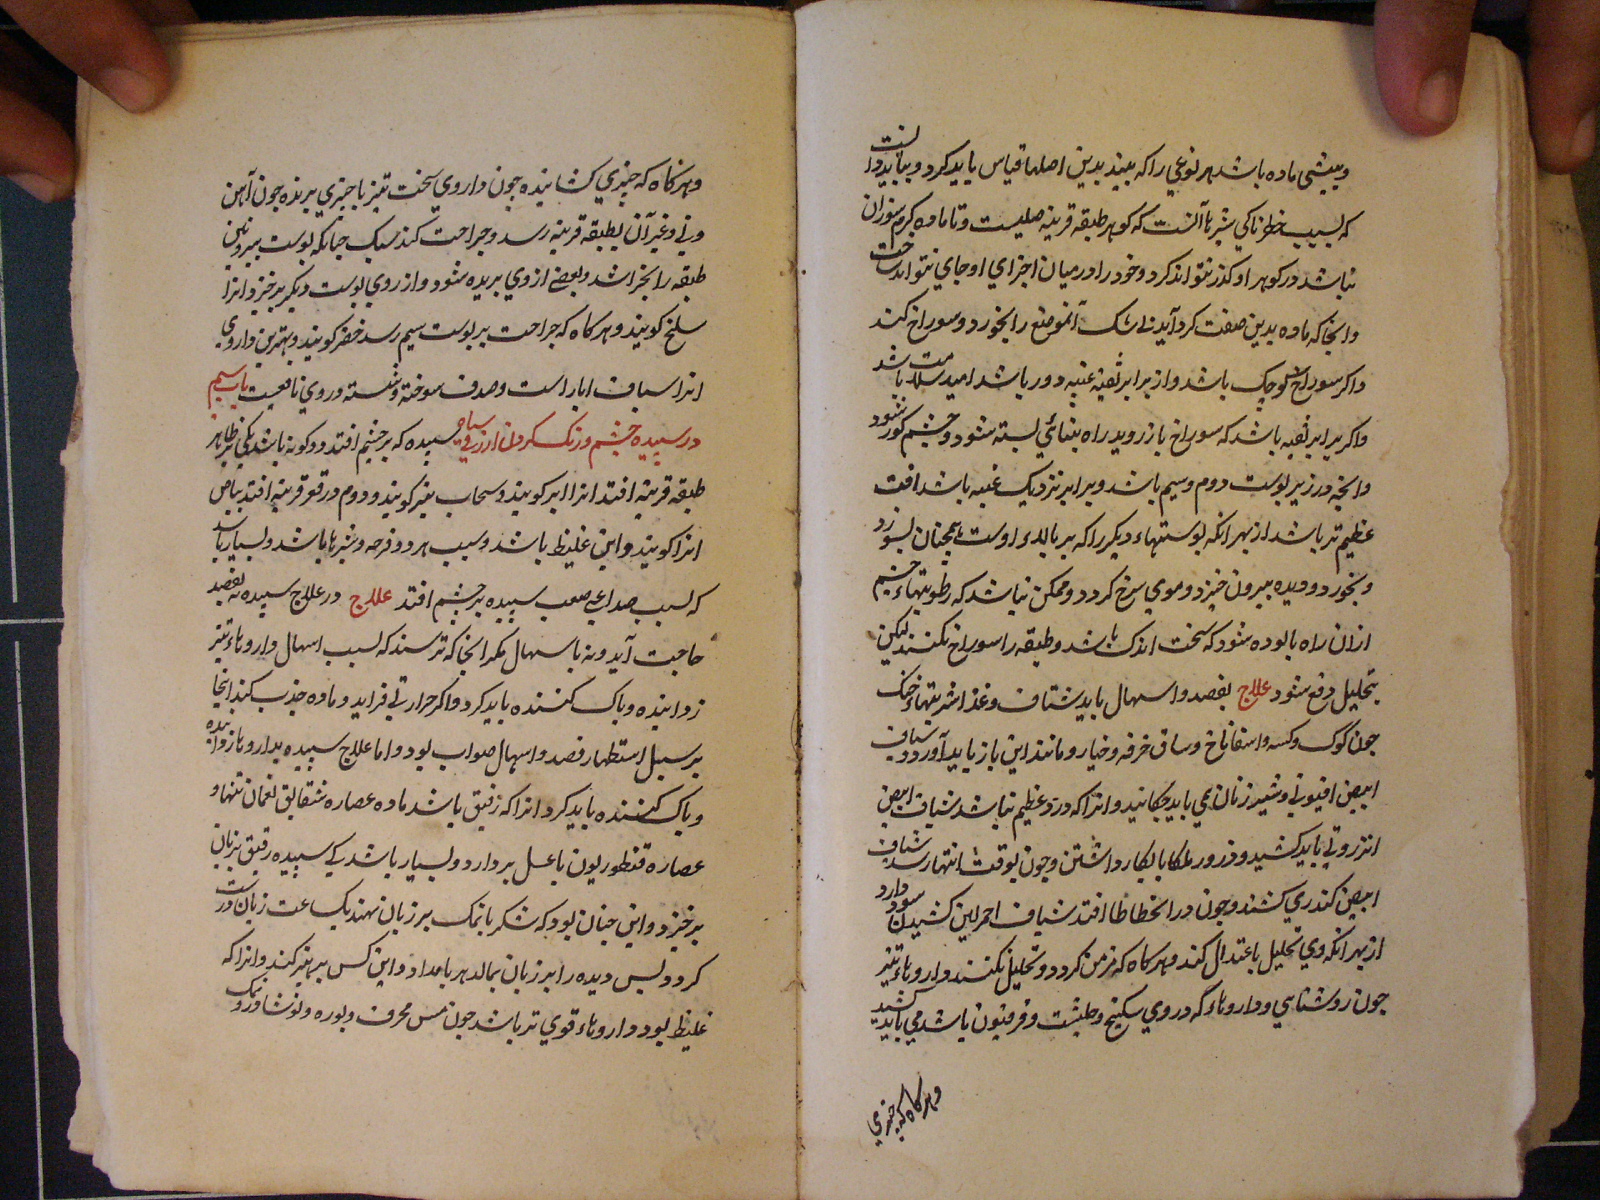 و بیشی ماده باشد هر نوعی را که بیند بدین اصلها قیاس باید کرد و بباید دانست
که سبب خطرناکی بثرها آنست که کوهر طبقه قرنیه صلبست و تا ماده کرم سوزان
نباشد در کوهر او کذر نتواند کرد و خود را در میان اجزای او جای نتواند ساخت
و انجا که ماده بدین صفت کرد آید بی شک آنموضع را بخورد و سوراخ کند
و اکر سوراخ کوچک باشد و از برابر ثقبه عنبیه دور باشد امید سلامت باشد
و اکر برابر ثقبه باشد که سوراخ باز روید راه بینائی بسته شود و چشم کور شود
و انچه در زیر پوست دوم و سیم باشد و برابر نزدیک عنبیه باشد افت
عظیم تر باشد از بهر انکه پوستهاء دیکر را که بر بالاء اوست همچنان بسوزد
و بخورد و دیده بیرون خیزد و موی سرخ کردد و ممکن نباشد که رطوبتهاء چشم
ازان راه پالوده شود که سخت اندک باشد و طبقه را سوراخ نکنند لیکن
بتحلیل دفع شود علاج بفصد و اسهال باید شتافت و غذا شربتهاء خنک
چون کوک و کسه و اسفاناخ و ساق خرفه و خیار و مانند این باز باید آورد و شیاف
ابیض افیونی و شیر زنان می باید چکانید و انرا که درد عظیم نباشد شیاف ابیض
انزروتی باید کشید و ذرور ملکایا بکار داشتن و چون بوقت انتها رسد شیاف
ابیض کندری کشند و چون در انحطاط افتد شیاف احمر لین کشیدن سود دارد
از بهر انکه وی تحلیل باعتدال کند و هر کاه که مزمن کردد و تحلیل نکنند داروهاء تیز
چون روشنائی و داروهاء که در وی سکبینج و حلتیت و فرفیون باشد می باید کشید
و هر کاه که چیزی
و هر کاه که چیزی کشاینده چون داروی سخت تیز یا چیزی برنده چون آهن
و نی و غیر آن بطبقه قرنیه رسد و جراحت کند سبک چنانکه پوست بیرونی
طبقه را بخراشد و بعضی ازوی بریده شود و از روی پوست دیکر برخیزد انرا
سلخ کویند و هر کاه که جراحت بر پوست سیم رسد حفر کویند و بهترین داروی
انرا شیاف ابار است و صدف سوخته و شسته در وی نافعست باب سیم
در سپیده چشم و رنک کردن ازرق و سیاه سپیده که بر چشم افتد دو کونه باشد یکی بر ظاهر
طبقه قرنیه افتد انرا ابر کویند و سحاب نیز کویند و دوم در قعر قرنیه افتد بیاض
انرا کویند و این غلیظ باشد و سبب هر دو قرحه و بثرها باشد و بسیار باشد
که بسبب صداعی صعب سپیده بر چشم افتد علاج در علاج سپیده نه بفصد
حاجت آید و نه باسهال مکر انجا که ترسند که بسبب اسهال داروهاء تیز
زداینده و پاک کننده باید کرد و اکر حرارتی فزاید و ماده جذب کند انجا
بر سبیل استظهار فصد و اسهال صواب بود و اما علاج سپیده بداروهاء زداینده
و پاک کننده باید کرد انرا که رقیق باشد ماده عصاره شقایق نعمان تنها و
عصاره قنطوریون با عسل بردارد و بسیار باشد کی سپیده رقیق بزبان
برخیزد و این چنان بود که شکر یا نمک بر زبان نهند یک ساعت زبان درست
کردد پس دیده را بر زبان بمالد هر بامداد و این کس پرهیز کند و انرا که
غلیظ بود داروهاء قوی تر باشد چون مس محرق و بوره و نوشادر و نمک